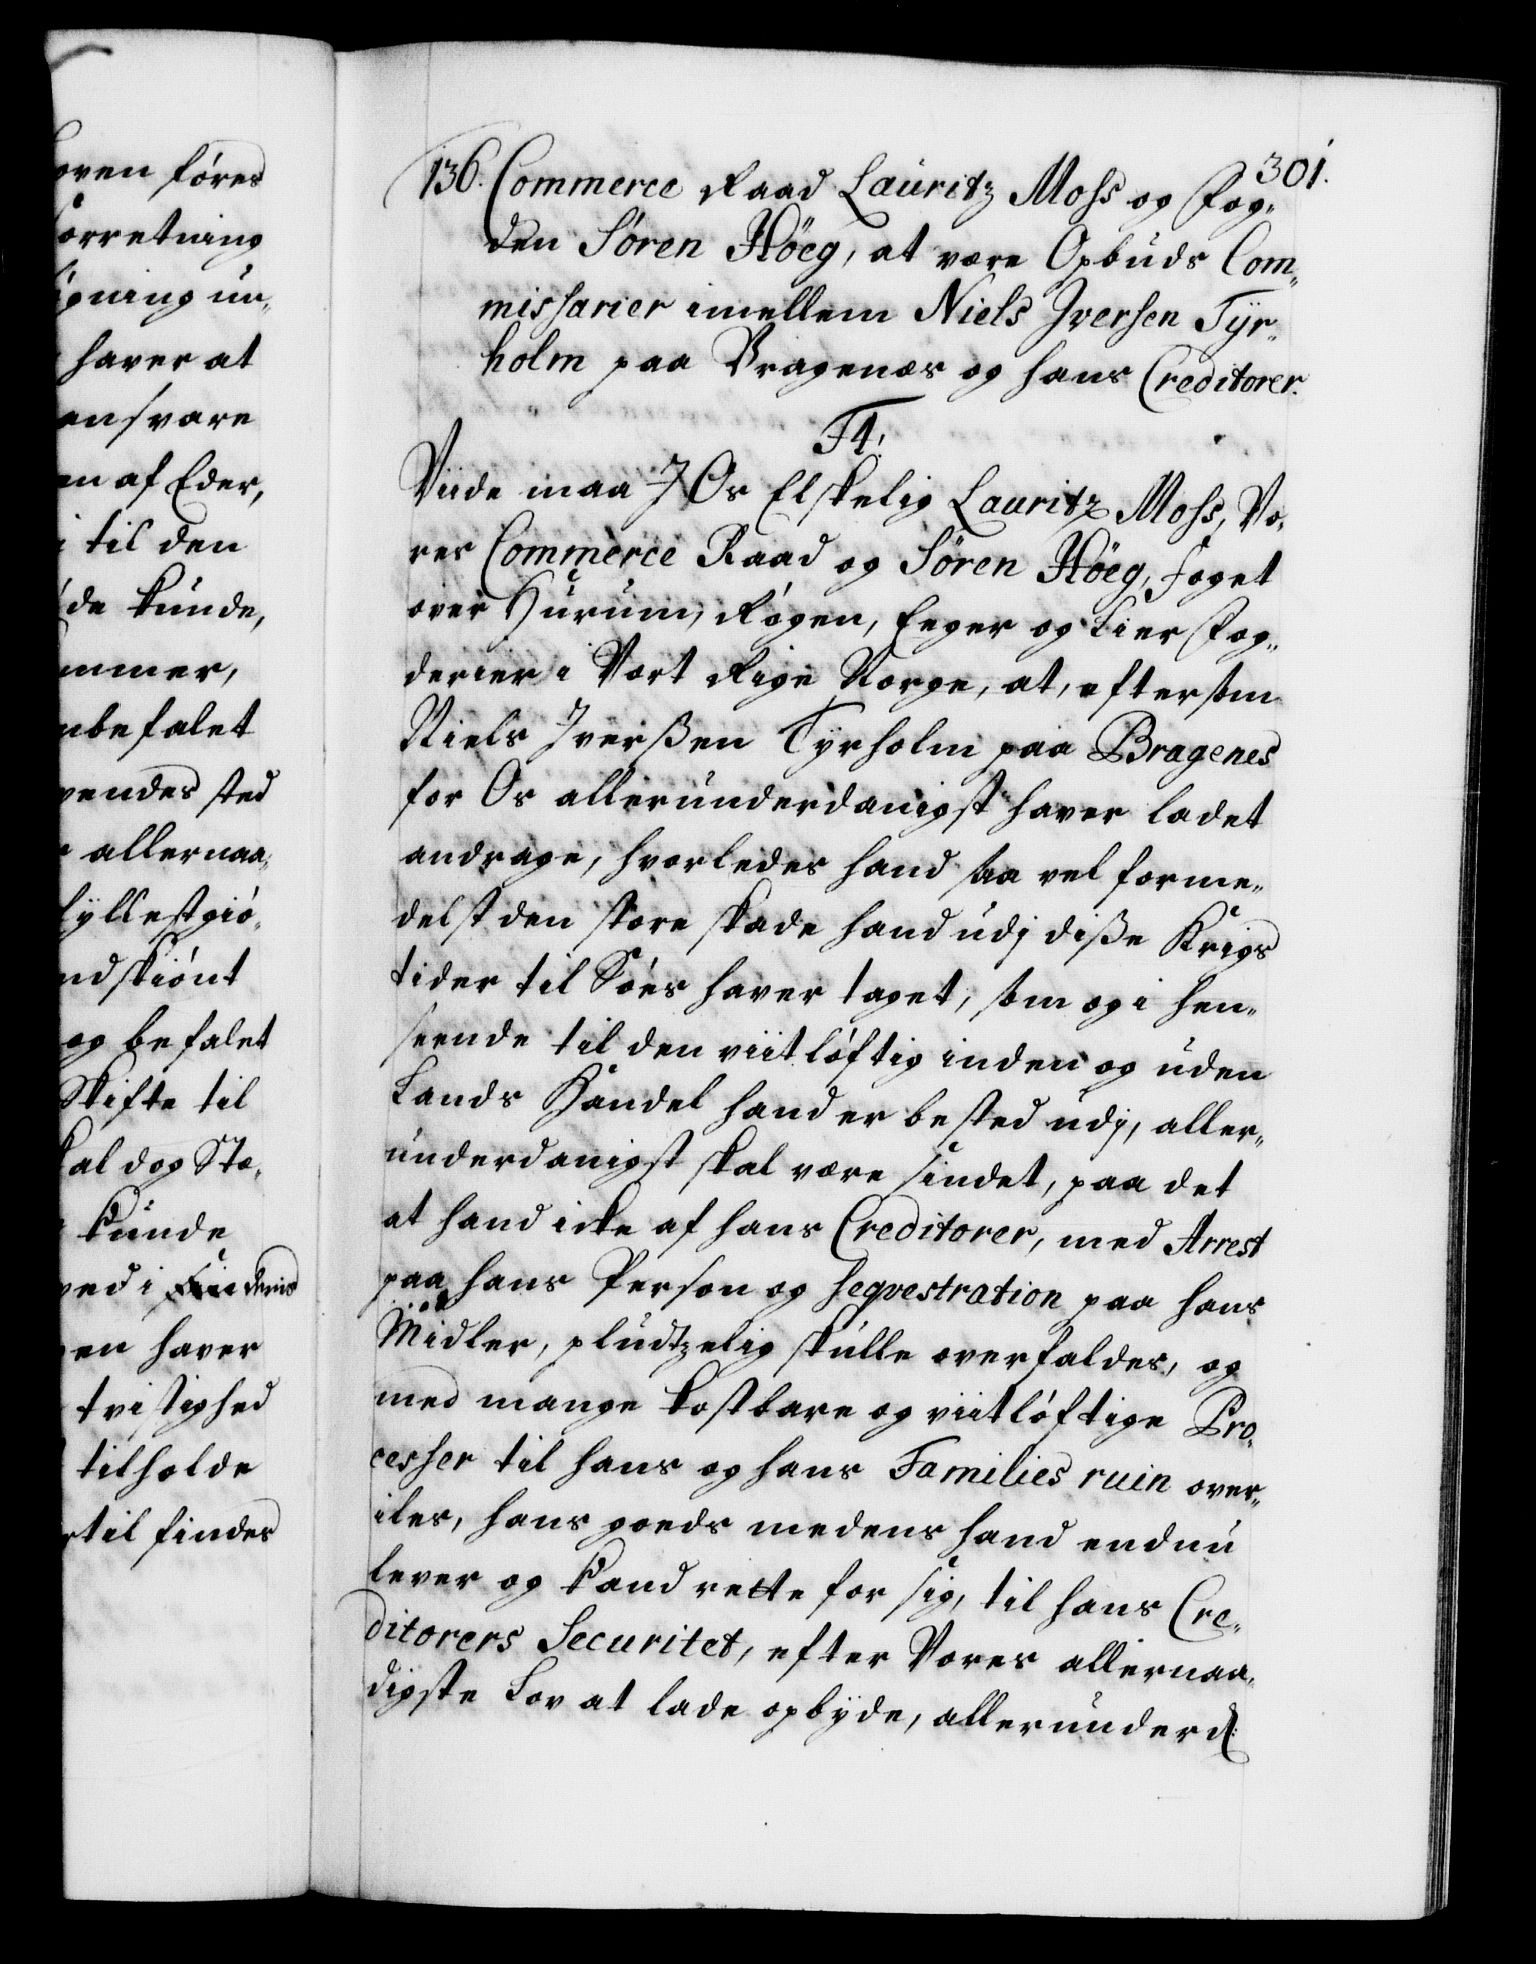 oven føres
orretning
pning un„
haver at
ansvare
en af Eder,
til den
de kunde,
ommer,
nbefalet
vendes sted
allernaa„
fyllestgiø„
ndskiønt
og befalet
Skifte til
al dog Stæ„
kunde
ved i
en haver
tvistighed
tilholde
til findes
301.
136. Commerce Raad Lauritz Moss og Fog„
den Søren Høeg, at være Opbuds Com„
missarier imellem Niels Jversen Tÿr„
holm paa Bragenæs og hans Creditorer.
F4.
Viide maa J Os Elskelig Lauritz Moss, Vo„
res Commerce Raad og Søren Høeg, Foget
over Hurum, Røgen, Eeger og Lier Fog„
derier i Vort Rige Norge, at, eftersom
Niels Jverßen Tÿrholm paa Bragenes
for Os allerunderdanigst haver ladet
andrage, hvorledes hand saa vel forme„
delst den store skade hand udj diße Krigs
tider til Søes haver taget, som og i hen„
seende til den viitløftig inden og uden
Lands Handel hand er bested udj, aller„
underdanigst skal være sindet, paa det
at hand icke af hans Creditorer, med Arrest
paa hans Person og seqvestration paa hans
Midler, pludtzelig skulle overfaldes, og
med mange kostbare og viitløftige Pro„
cesser til hans og hans Families ruin over„
iles, hans goeds medens hand endnu
lever og kand rette for sig, til hans Cre„
ditorers Securitet, efter Vores allernaa„
digste Lov at lade opbÿde, allerunderd: